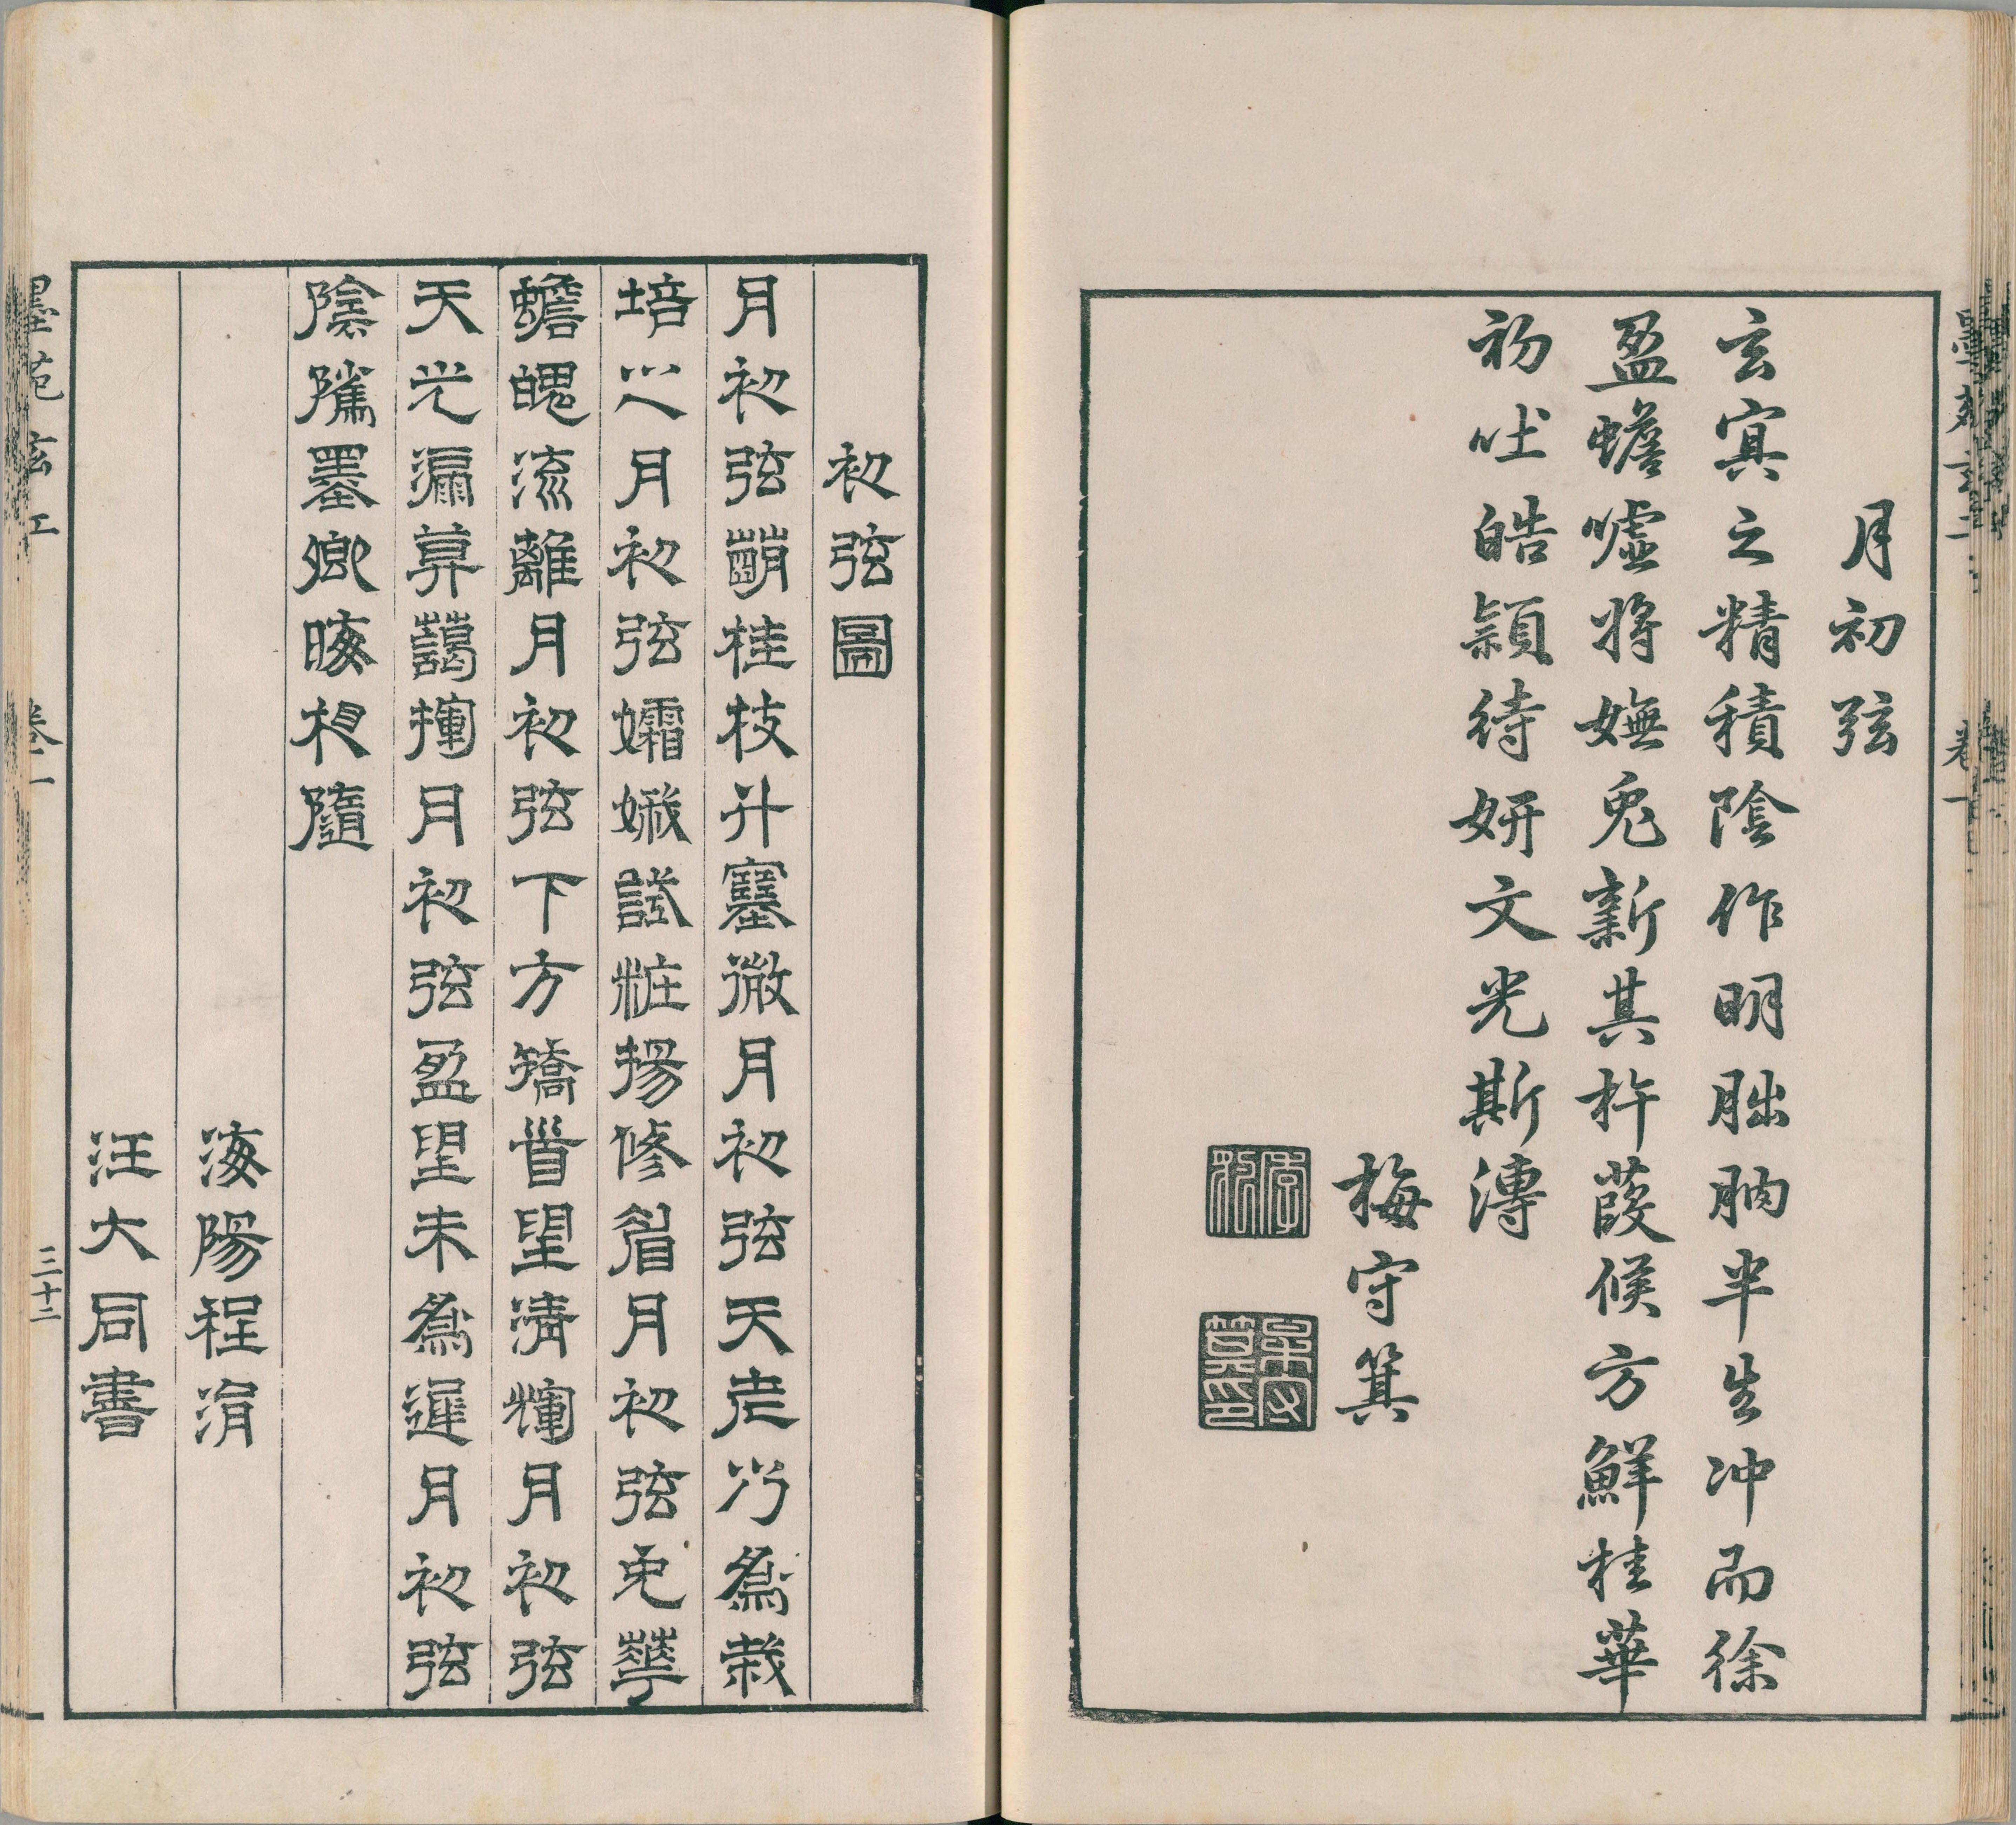 月初弦
玄㝠之精積陰作明朏朒半生冲而徐
盈蟾噓將嫵兎新其杵葭候方鮮桂華
初吐皓頴待妍文光斯漙
梅守箕
季豹
梅守箕印
初弦圖
月初弦桂枝升微月初弦天老兮為栽
培之月初弦孀娥試粧揚修眉月初弦兔華
蟾魄流離月初弦下方矯首望清輝月初弦
天光漏藹揮月初弦盈望未為遲月初弦
陰騭墨卿晦相隨
海陽程涓
汪大同書
墨苑玄工 卷一 三十二